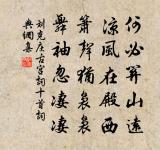 何必關山遠
涼風在殿西
簫聲猶裊裊
舞袖忽凄凄
劉克庄古宮詞十首詞
典網集